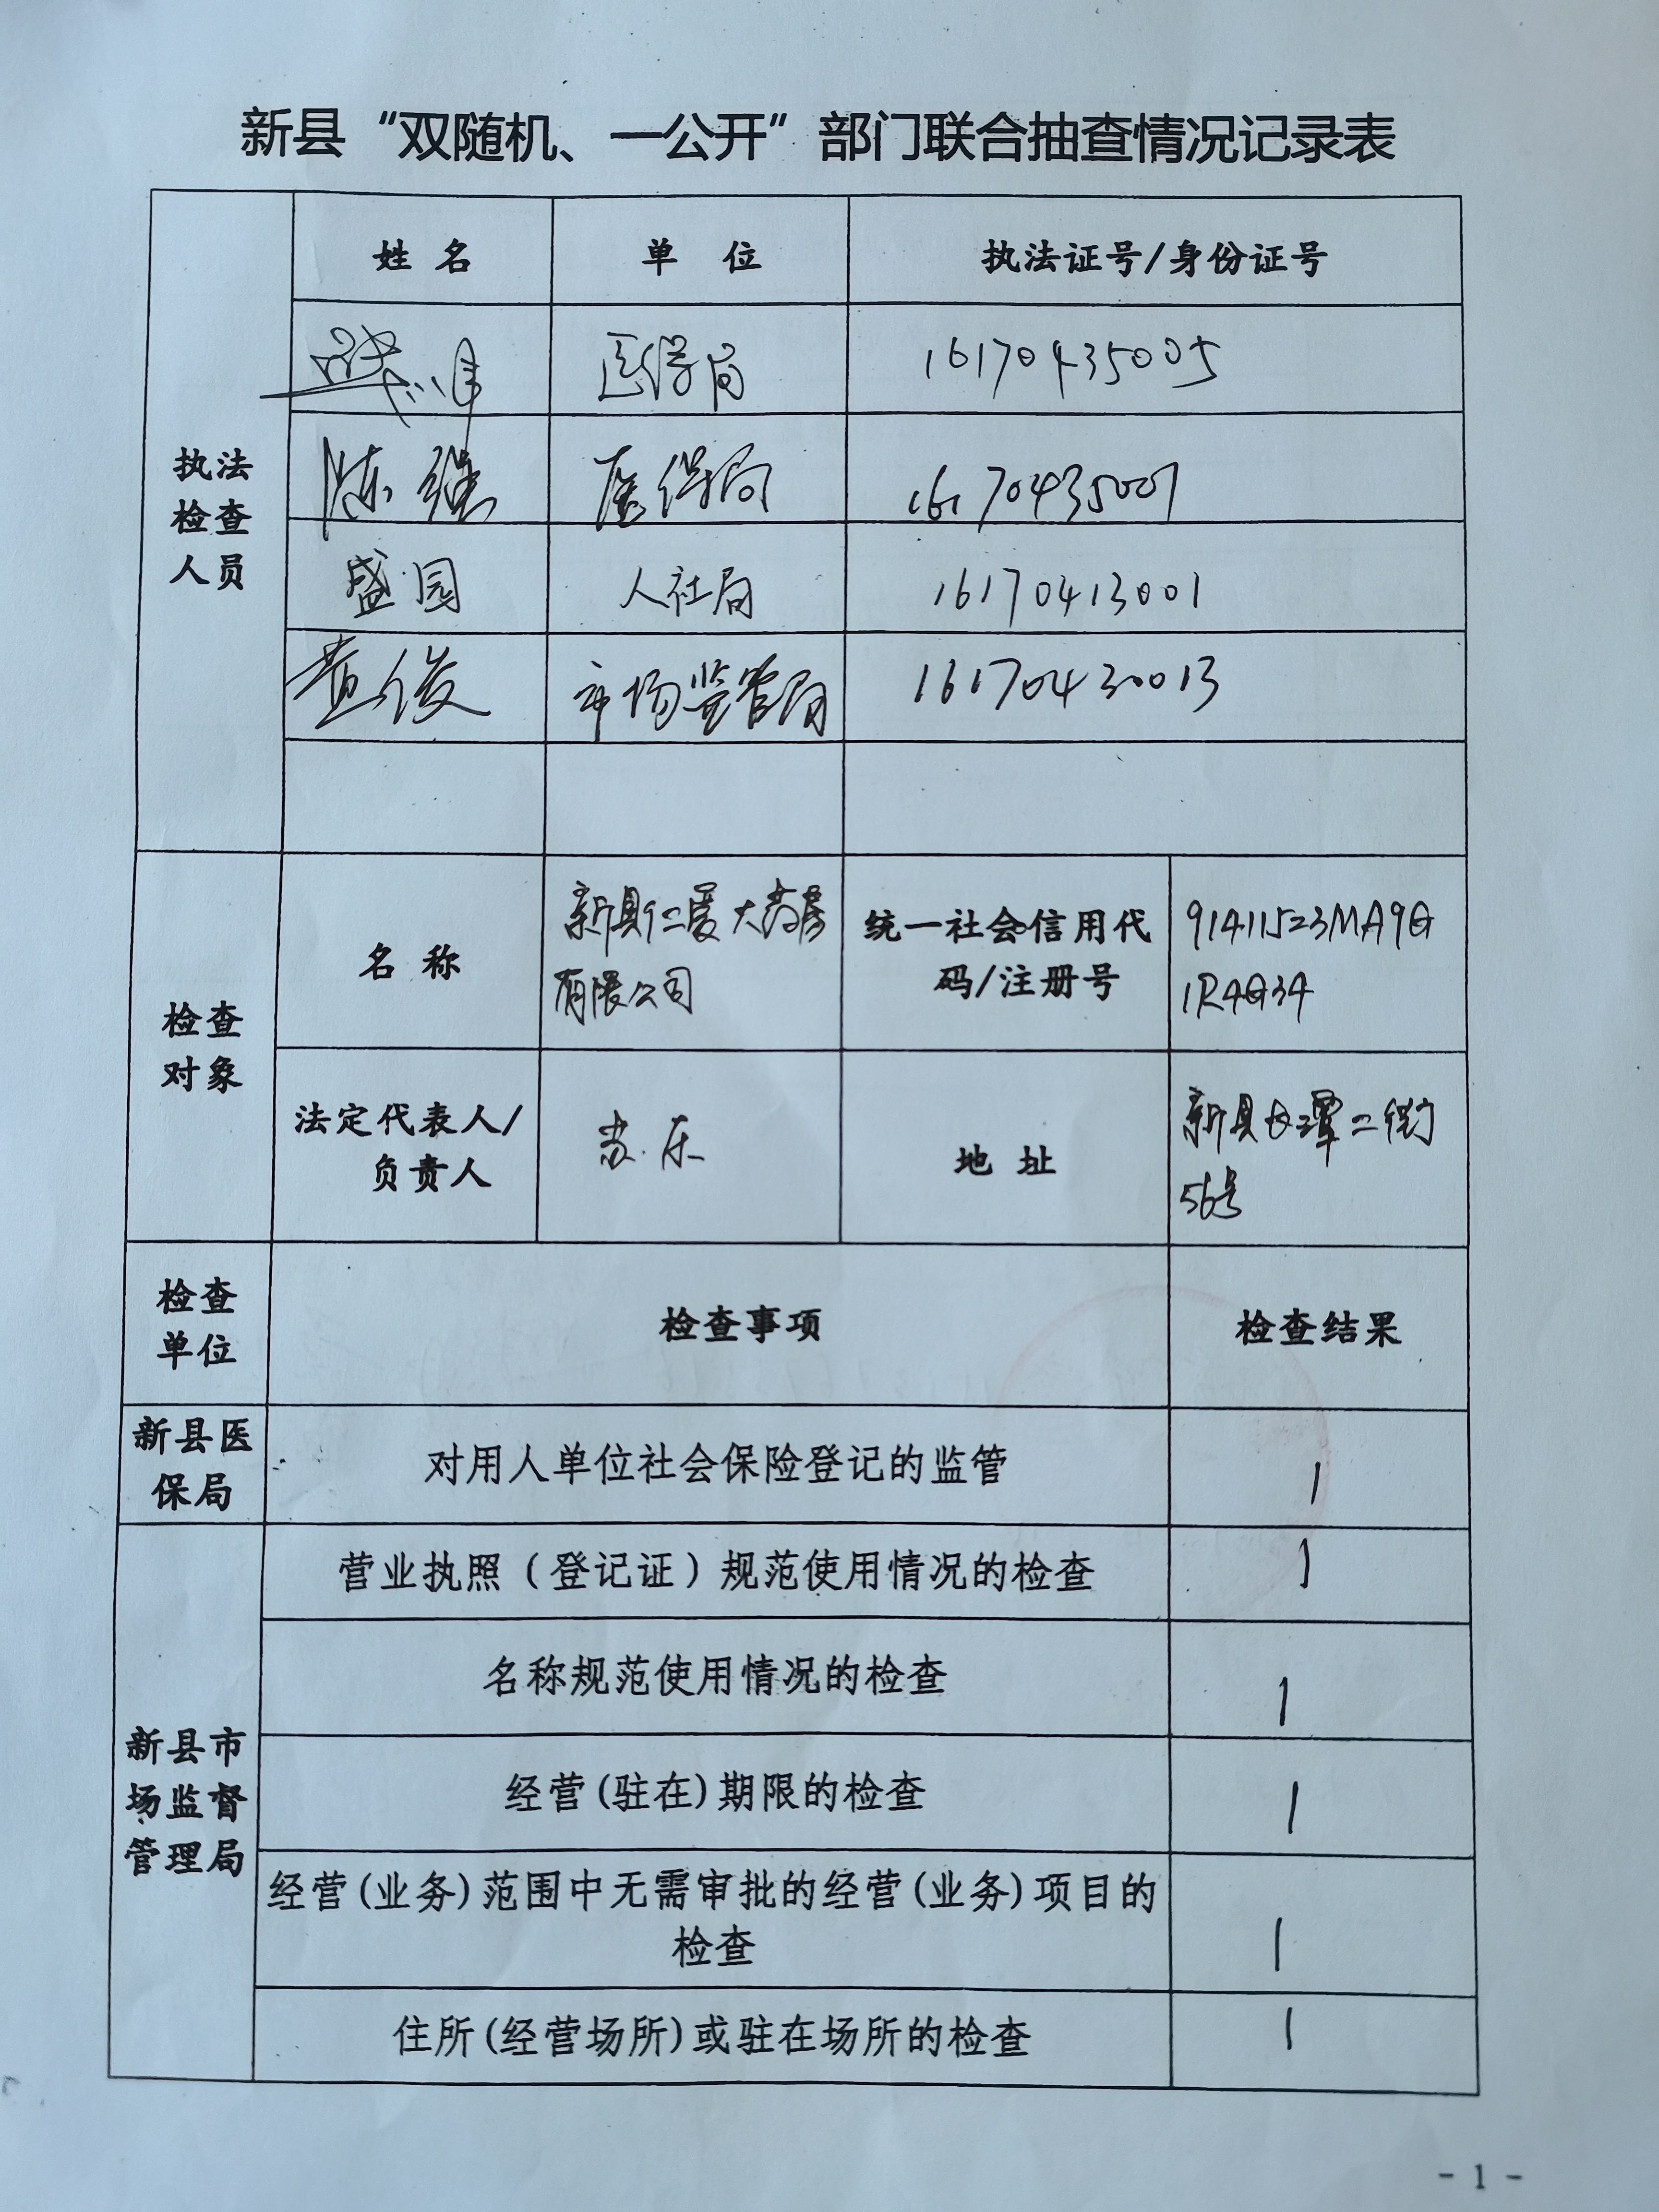 新县“双随机、一公开”部门联合抽查情况记录表
姓 名 单 位 执法证号/身份证号
医保局 16170435005
执法
检查
人员
陈继 医保局 16170435007
盛园 人社局 16170413001
黄俊 市场监管局 16170430013
检查
对象
名 称
新县仁爱大药房
有限公司
统一社会信用代
码/注册号
91411523MA9G
1R4G34
法定代表人/
负责人
苏乐
地 址
新县长潭二街
56号
检查
单位
检查事项 检查结果
新县医
保局
对用人单位社会保险登记的监管 1
新县市
场监督
管理局
营业执照（登记证）规范使用情况的检查 1
名称规范使用情况的检查 1
经营(驻在)期限的检查 1
经营(业务)范围中无需审批的经营(业务)项目的
检查 1
住所(经营场所)或驻在场所的检查 1
- 1 -